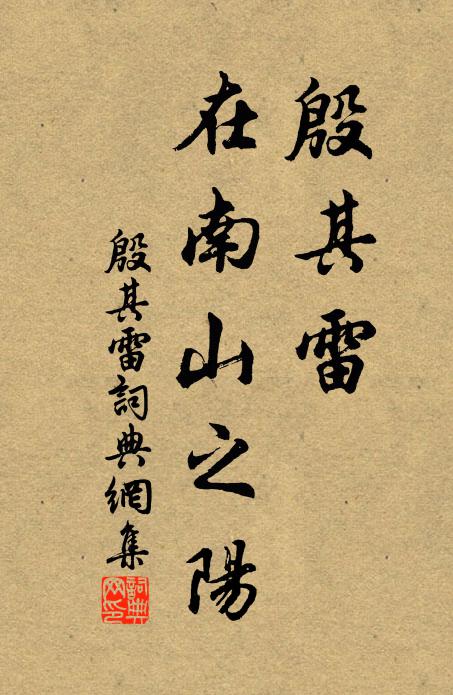 殷其雷
在南山之陽
殷其雷詞典網集
詞典
网印